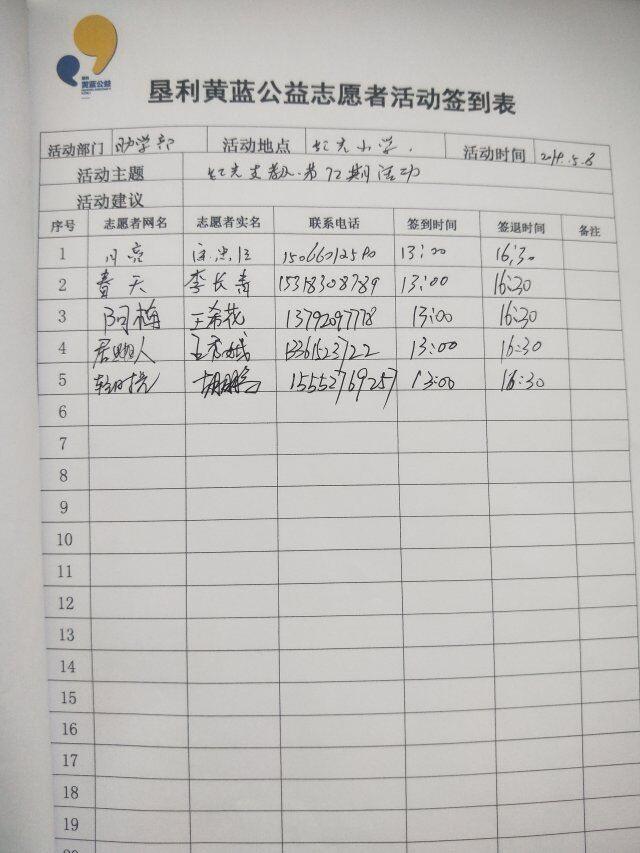 黄蓝公益
垦利黄蓝公益志愿者活动签到表
活动部门 助学部 活动地点 虹光小学. 活动时间 2019.5.8
活动主题 虹光支教.第72期活动
活动建议
序号 志愿者网名 志愿者实名 联系电话 签到时间 签退时间 备注
1 13:00 16:30
2 春天 李长青 15318308789 13:00 16:30
3 阿梅 王希花 13792097778 13:00 16:30
4 13361523722 13:00 16:30
5 胡鹏 15552769257 13:00 16:30
6
7
8
9
10
11
12
13
14
15
16
17
18
19